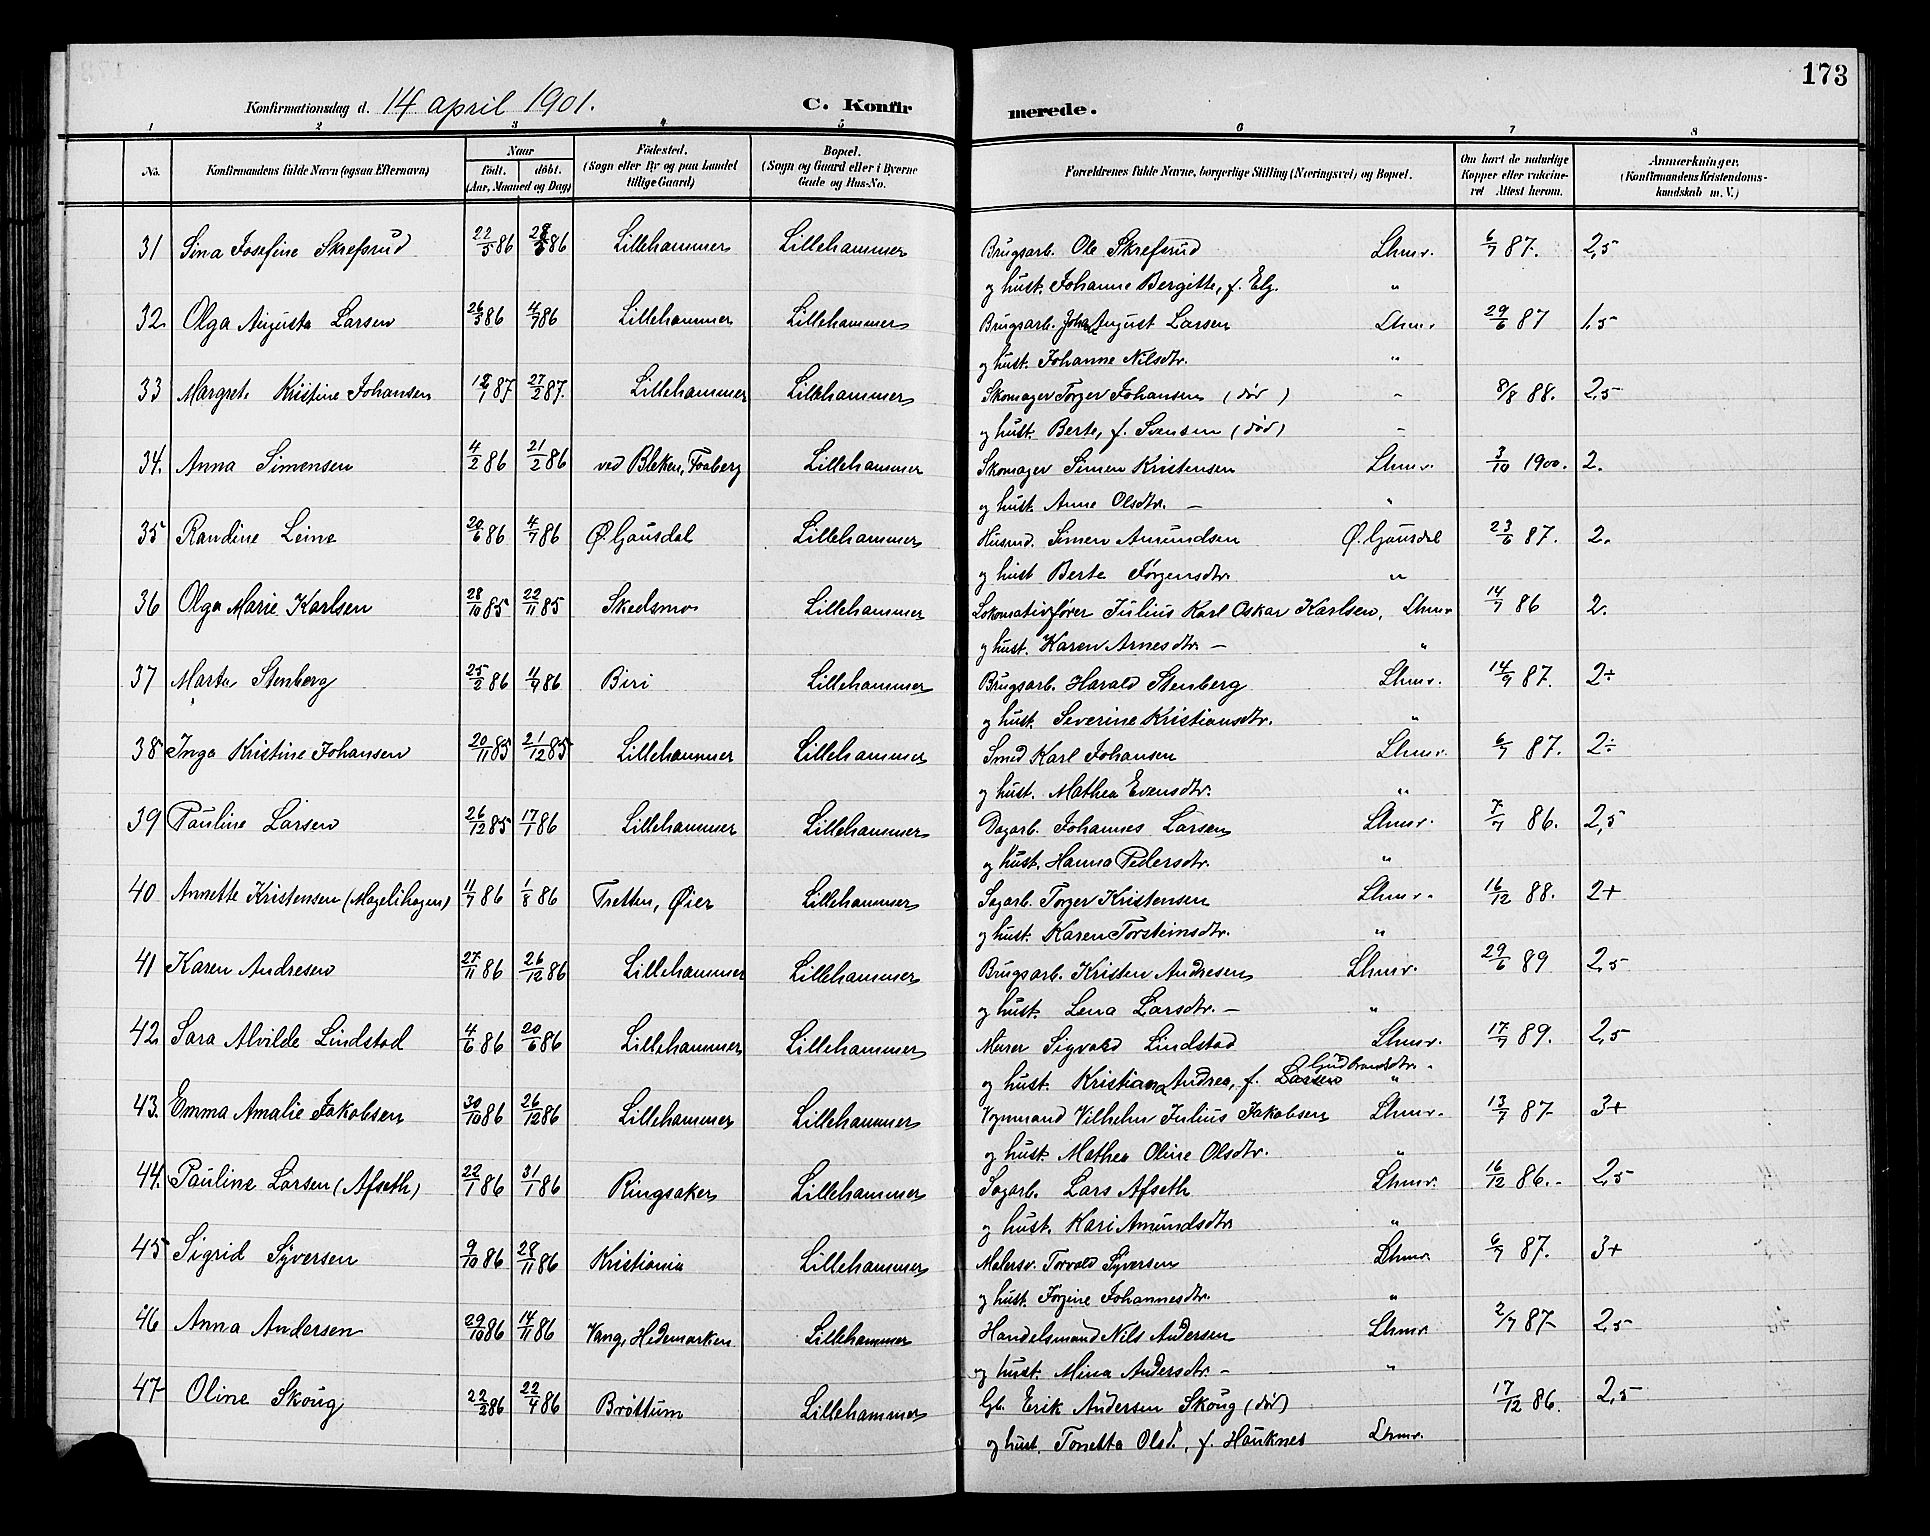 173
Konfirmationsdag d. 14 april 1901. C. Konfirmerede.
1 2 3 4 5 6 7 8
No. Konfirmandens fulde Navn (ogsaa Efternavn) Naar født. døbt. (Aar, Maaned og Dag) Fødested. (Sogn eller By og paa Landet tillige Gaard) Bopæl. (Sogn og Gaard eller i Byerne Gade og Hus-No. Forældrenes fulde Navne, borgerlige Stilling (Næringsvei) og Bopæl. Om havt de naturlige Kopper eller vakcineret Attest herom. Anmærkninger. (Konfirmandens Kristendomskundskab m. V.)
31 Sina Josefine Skrefsrud 22/5 86 86 Lillehammer Lillehammer Brugsarb. Ole Skrefsrud Lhmr. 6/7 87. 2,5
og hust. Johanne Bergitte, f. Elg. "
32 Olga Augusta Larsen 26/5 86 4/7 86 Lillehammer Lillehammer Brugsarb. Johan August Larsen Lhmr 29/6 87 1,5
og hust. Johanne Nilsdtr. "
33 Margrete Kristine Johansen 12/1 87 27/2 87. Lillehammer Lillehammer Skomager Torger Johansen (død) - 8/8 88. 2,5
og hust. Berte, f. Svensen (død) -
34. Anna Simensen 4/2 86 21/2 86 ved Bleken, Faaberg Lillehammer Skomager Simen Kristensen Lhmr. 3/10 1900. 2.
og hust. Anne Olsdtr. - "
35 Randine Leine 20/6 86 4/7 86 Ø. Gausdal Lillehammer Husmd. Simen Amundsen Ø. Gausdal 23/6 87. 2.
og hust Berte Jørgensdtr. "
36 Olga Marie Karlsen 28/10 85 22/11 85 Skedsmo Lillehammer Lokomativfører Julius Karl Oskar Karlsen, Lhmr 14/7 86 2.
og hust. Karen Arnesdtr. - "
37 Marta Stenberg 25/2 86 4/4 86 Biri Lillehammer Brugsarb. Harald Stenberg Lhmr. 14/9 87. 2÷
og hust. Severine Kristiansdtr. "
38 Inga Kristine Johansen 20/11 85 21/12 85 Lillehammer Lillehammer Smed Karl Johansen Lhmr. 6/7 87. 2÷
og hust. Mathea Evensdtr. "
39 Pauline Larsen 26/12 85 17/1 86 Lillehammer Lillehammer Dagarb. Johannes Larsen Lhmr. 7/7 86. 2,5
og hust. Hanna Pedersdtr. "
40 Annette Kristensen (Magelihagen) 11/7 86 1/8 86 Tretten, Øier Lillehammer Sagarb. Torger Kristensen Lhmr. 16/12 88. 2+
og hust. Karen Torsteinsdtr. "
41 Karen Andresen 27/11 86 26/12 86 Lillehammer Lillehammer Brugsarb. Kristen Andresen Lhmr. 29/6 89 2,5
og hust. Lena Larsdtr. - "
42 Sara Alvilde Lindstad 4/6 86 20/6 86 Lillehammer Lillehammer Murer Sigvald Lindstad Lhmr. 17/7 89. 2,5
og hust. Kristiane Andrea, f. Larsen Gudbrandsdtr. "
43. Emma Amalie Jakobsen 30/10 86 26/12 86 Lillehammer Lillehammer Vognmand Vilhelm Julius Jakobsen Lhmr. 13/7 87- 3+
og hust. Mathea Oline Olsdtr. "
44. Pauline Larsen (Afseth) 22/1 86 31/1 86 Ringsaker Lillehammer Sagarb. Lars Afseth Lhmr. 16/12 86.- 2,5
og hust. Kari Amundsdtr "
45 Sigrid Syversen 9/10 86 28/11 86 Kristiania Lillehammer Malersv. Torvald Syversen Lhmr. 6/7 87. 3+
og hust. Jørgine Johannesdtr. "
46 Anna Andersen 29/10 86 14/11 86 Vang, Hedemarken Lillehammer Handelsmand Nils Andersen Lhmr. 2/7 87- 2,5
og hust. Mina Andersdtr. - "
47 Oline Skoug 22/2 86 22/4 86 Brøttum Lillehammer Gb. Erik Andersen Skoug (død) 17/12 86. 2,5
og hust. Tonetta Olsd., f. Hauknes Lhmr.